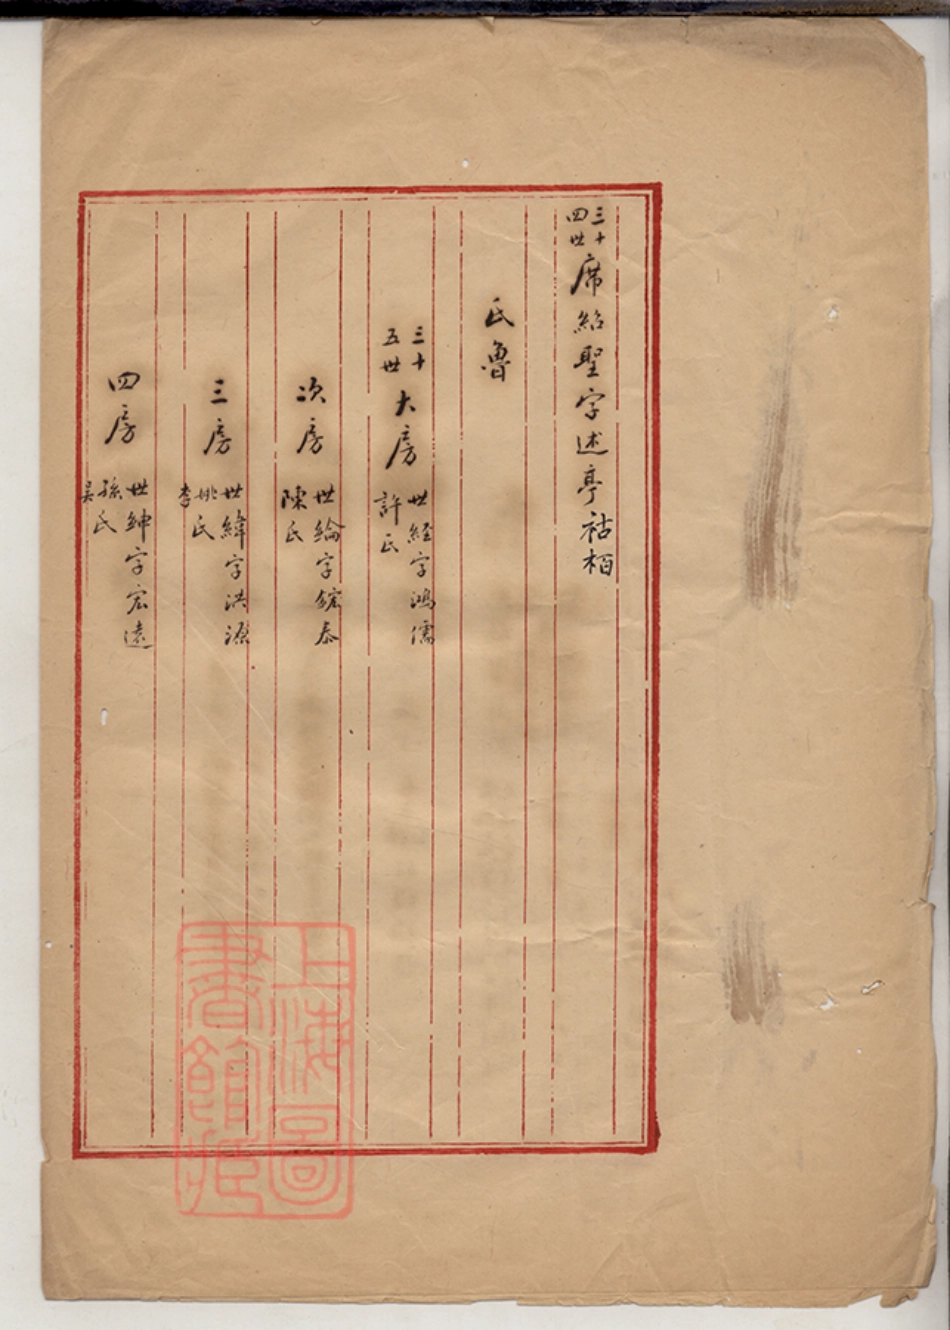 三十四世席紹聖字述亭祜栢
氏魯
三十五世大房世經字鴻儒許氏
次房世綸字鋐泰陳氏
三房世緯字洪源姚氏李
四房世紳字宏遠孫氏吳
上海圖書館藏